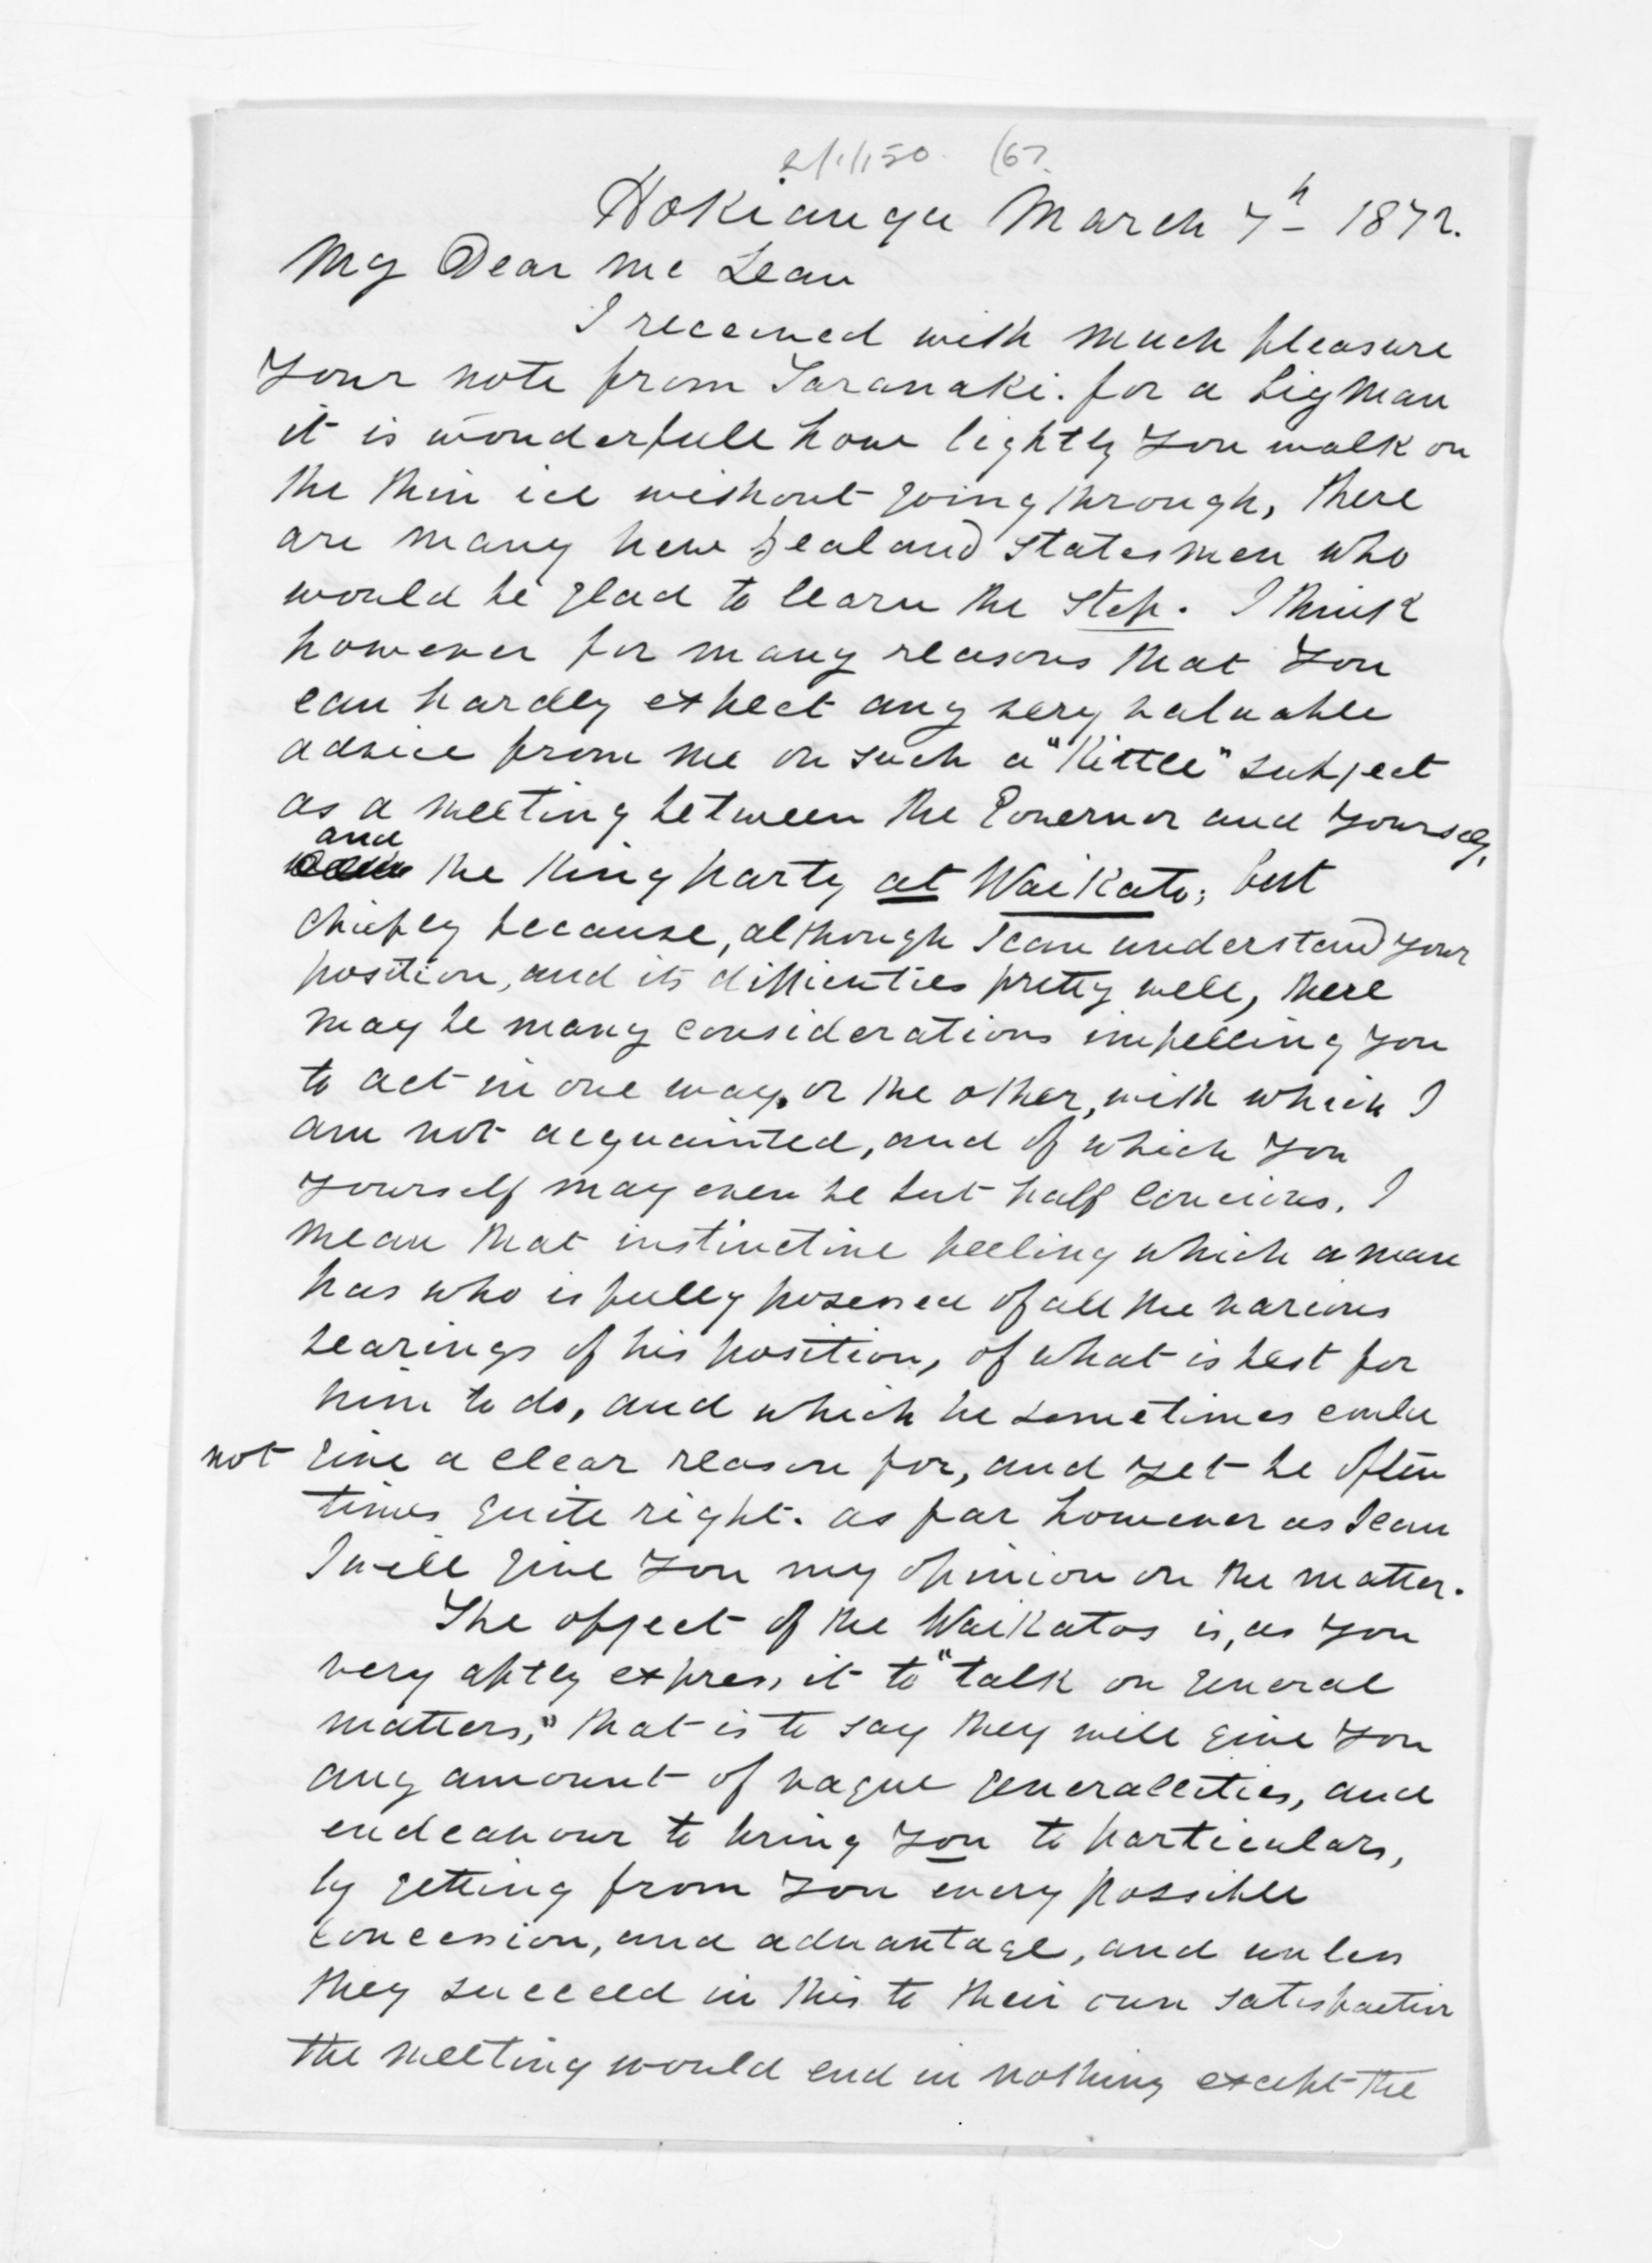 Hokianga March 7h 1872.
My Dear Mc Lean
I received with much pleasure
Your note from Taranaki. for a big man
it is wonderfull how lightly you walk on
the thin ice without going through, there
are many New Zealand Statesmen who
would be glad to learn the step. I think
however for many reasons that you
can hardly expect any very valuable
advice from me on such a "Kittle" subject
as a meeting between the Governor and yourself,
and
the King party at Waikato; but
chiefly because, although I can understand your
position, and its difficulties pretty well, there
may be many considerations impelling you
to act in one way, or the other, with which I
am not acquainted, and of which you
yourself may even be but half concious. I
mean that instinctive feeling which a man
has who is fully posessed of all the various
bearings of his position, of what is best for
him to do, and which he sometimes could
not give a clear reason for, and yet be often
times quite right. as far however as I can
I will give you my opinion on the matter.
The object of the Waikatos is, as you
very aptly express it to "talk on general
matters," that is to say they will give you
any amount of vague generalities, and
endeavour to bring you to particulars,
by getting from you every possible
concession, and advantage, and unless
they succeed in this to their own satisfaction
the meeting would end in nothing except the